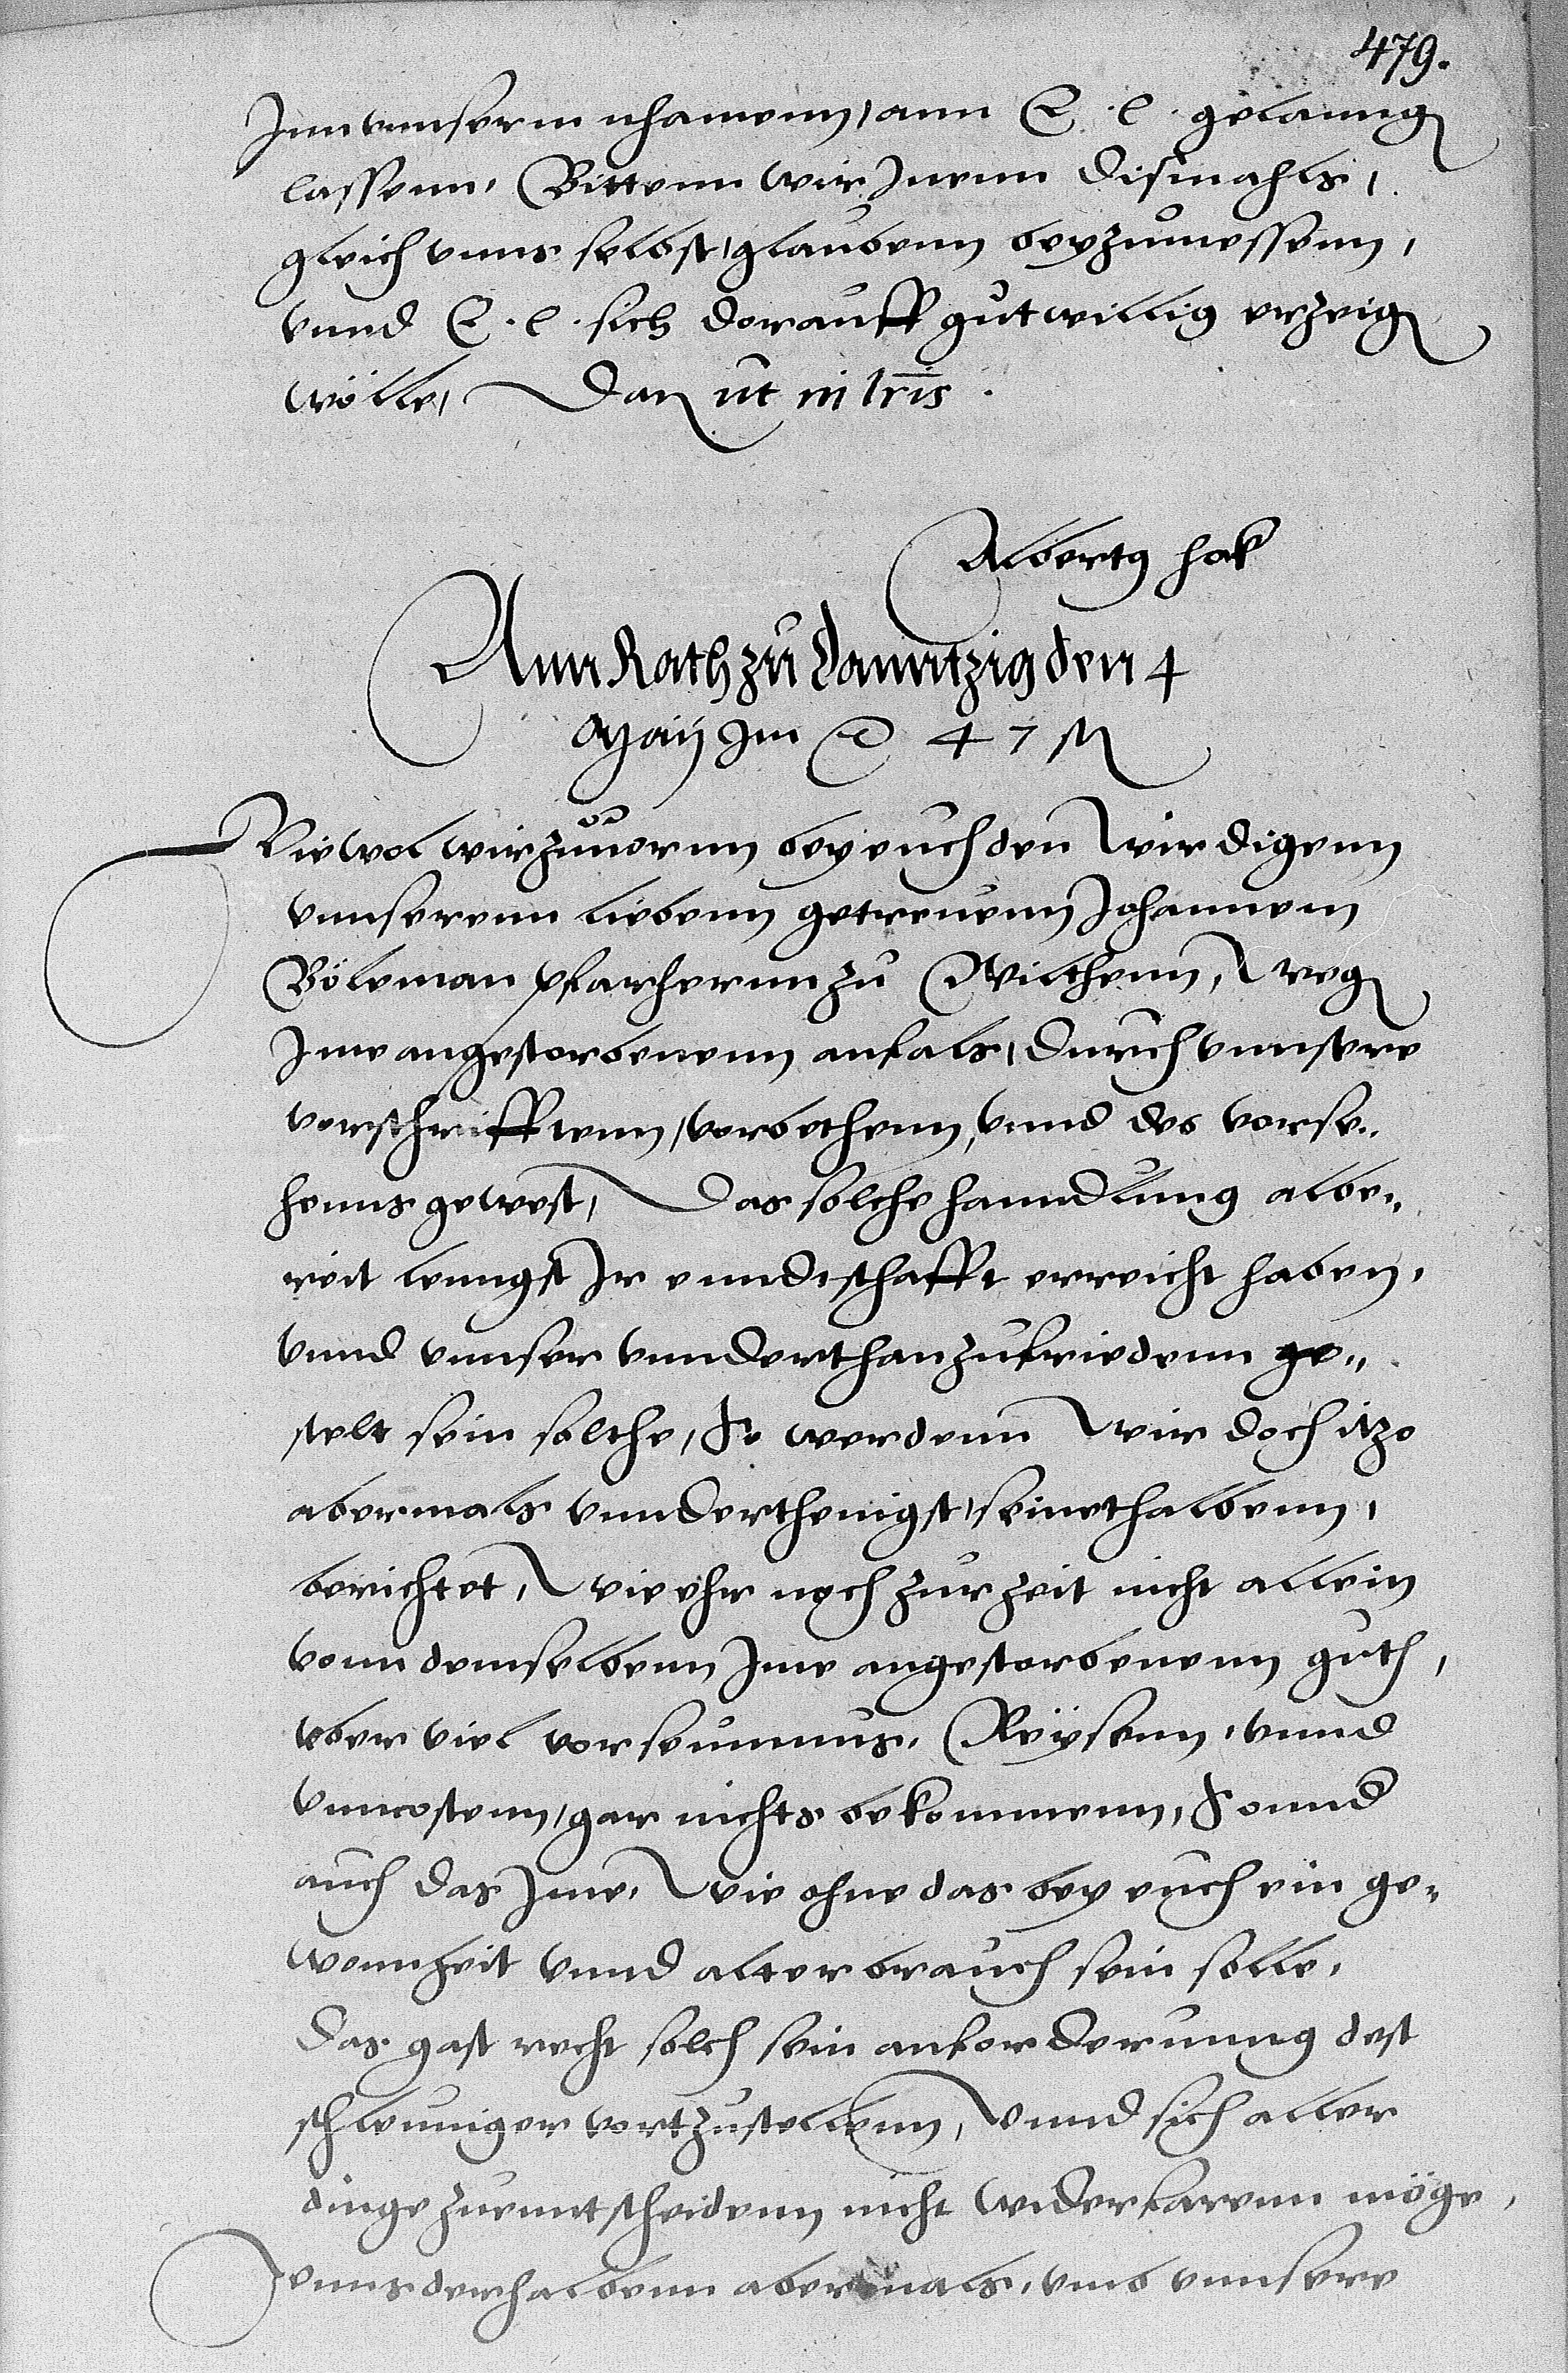 479.
Inn unnserm nhamenn, ann E. l. gelanng
lassenn, Bittenn wir Inenn dismahls,
gleich unns selbst, glaubenn beyzumessenn,
unnd E. l. sich dorauff gutwillig erzeig
wölle, Dan ut in lris.
Albertg hak
Ann Rath zu Danntzig den 4
Maij Im 47 st
Wiewol wir zuuornn bey euch den wirdigenn
unnserenn liebenn getreuenn Johannem
Böleman pfarhernn zu Milthenn, weg
Ime angestorbenenn anfals, durch unnsere
vorschrifftenn, vorbethenn, unnd des vorse-
henns gewest, Das solche hanndlung albe-
reit lenngst Ir enndtschafft erreicht haben,
unnd unnser unnderthan zufriedenn ge-
stelt sein solthe, So werdenn wir doch itzo
abermals unnderthenigst, seinethalbenn,
berichtet, Wie ehr noch zur zeit nicht allein
vonn demselbenn Ime angestorbenenn guth,
uber viel vorseumnus, Reysenn, unnd
unncostenn, gar nichts bekommenn, Sonnd
auch das Ime, Wie ohne das bey euch ein ge-
wonheit unnd alter brauch sein solle,
Das gast recht solch sein anforderunng dest
schleuniger vortzustellenn, Unnd sich aller
dinge zuenntscheidenn nicht widerfarenn möge,
Unns derhalbenn abermals, umb unnsere